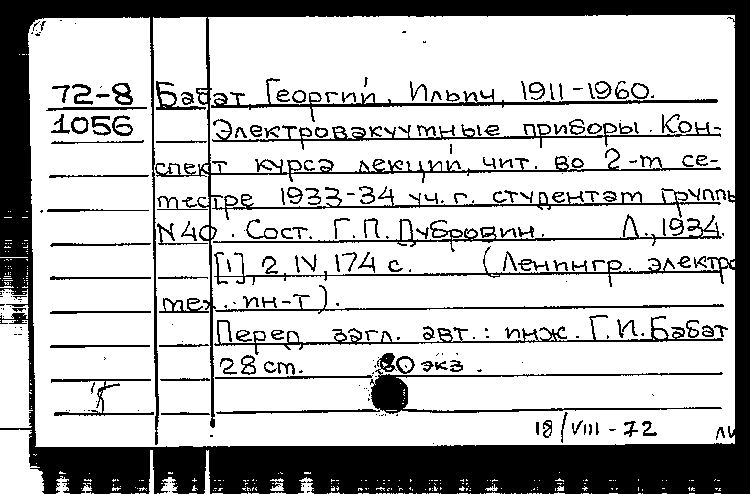 72-8 Бабат, Георгий, Ильич, 1911-1960.
1056 Электровакуумные приборы. Кон-
спект курса лекций, чит. во 2-м се-
местре 1933-34 уч. г. студентам группы
N40. Сост. Г.П. Дубровин. Л., 1934.
[1], 2, IV, 174 с. (Ленингр. электро
тех. ин-т).
Перед загл. авт.: инж. Г.И. Бабат
28 ст. 80 экз.
18/VIII-72